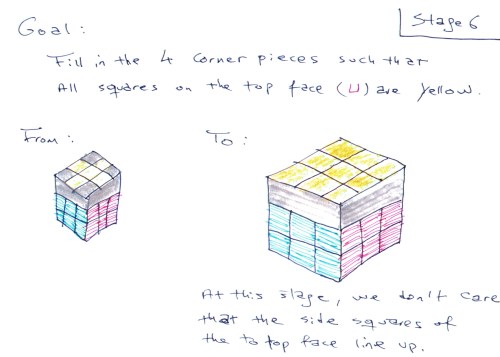 Stage 6
Goal:
Fill in the 4 corner pieces such that
All squares on the top face (U) are yellow.
From:
To:
At this stage, we don't care
that the side squares of
the top face line up.